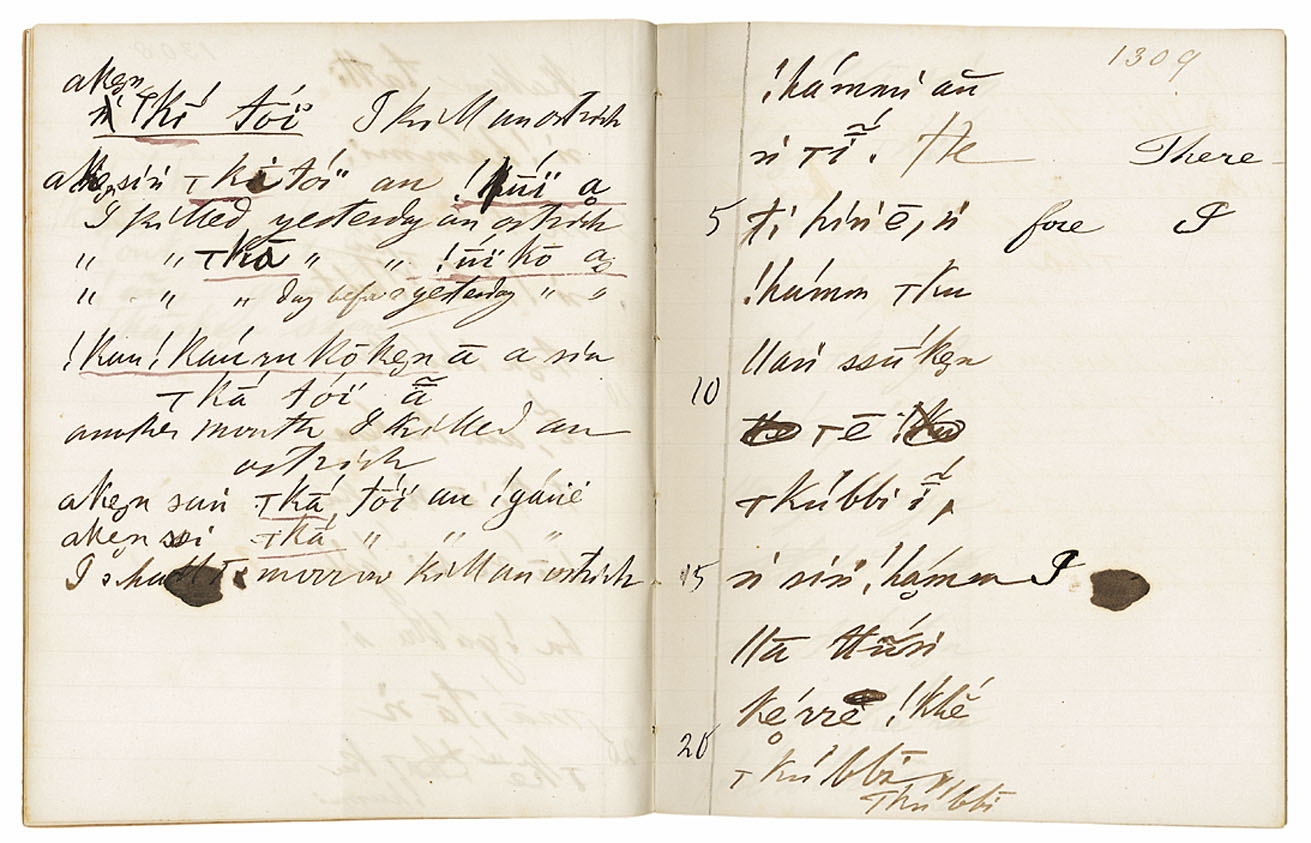 aken
ń ꞆKí tói I kill an ostrich
aken siń ꞆKi tói an !kúï a̯
I killed yesterday an ostrich
" " ꞆKā " " !uï kō a̯
" " " day before yesterday " "
!Kau!Kaúru kō ken ā a siń
ꞆKá tói ā̃
another month I killed an
ostrich
aken san ꞆKá tói an !gáue
aken ssi ꞆKá " " "
I shall to morrow kill an ostrich
1309
!hámmi au
ń Ꞇĩ. He There
5 ti hiń ē, ń fore I
!hámm Ꞇku
ǁau ssū́ken
10 Ꞇē
ꞆKúbbi ĩ,
15 ń siń !hámm I
ǁā
kérré !khĕ
20 ꞆKúbbi
Ꞇkúbbi